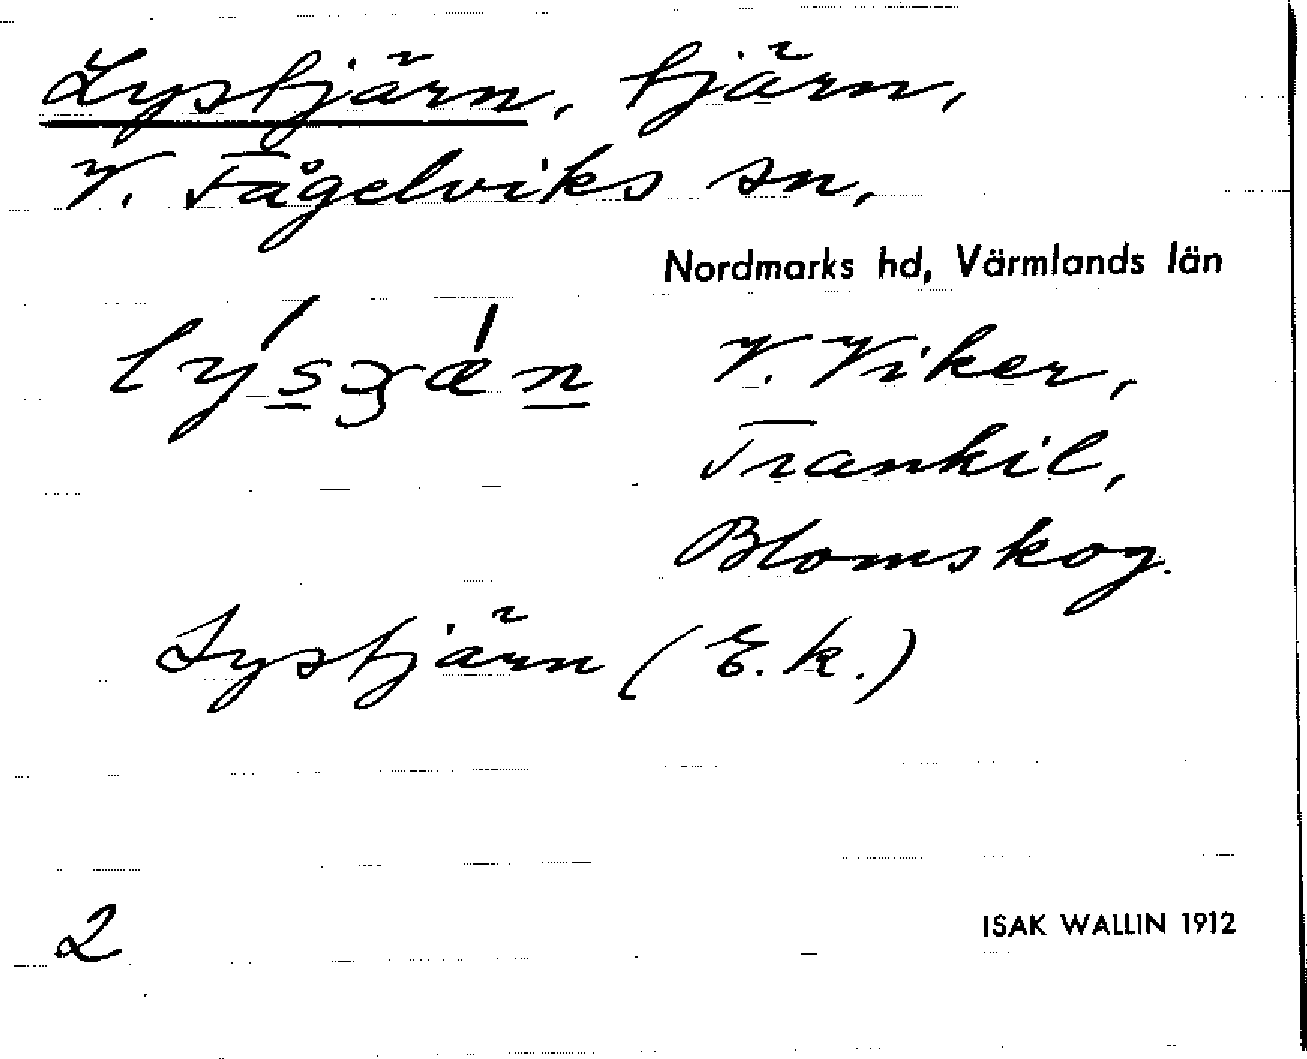 Lystjärn, tjärn,
V. Fågelviks sn,
Nordmarks hd, Värmlands län
V. Viker,
Trankil,
Blomskog.
Lystjärn (E.k.)
2
ISAK WALLIN 1912